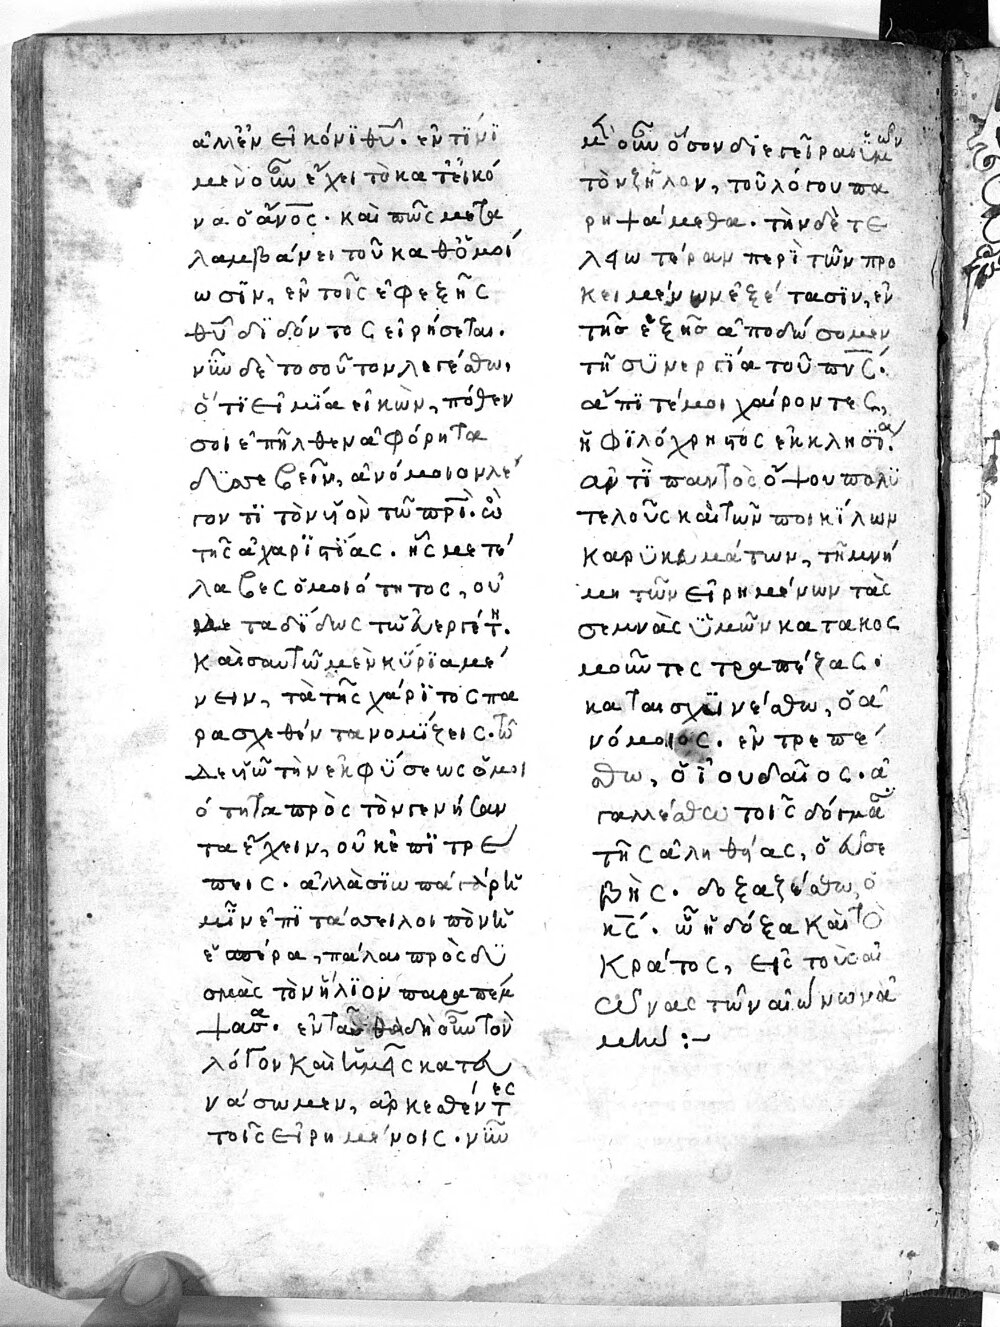 ἀλλ' ἐν εἰκόνι θῡ. ἐν τίνι
μὲν οὖν ἔχει τὸ κατ' εἰκό
να ὁ ἄνος. καὶ πῶς μετα
λαμβάνει τοῦ καθ' ὁμοί
ωσιν, ἐν τοῖς ἐφεξῆς
θῡ διδόντος εἰρήσεται.
νῦν δὲ τοσοῦτον λεγέσθω,
ὅτι εἰ μία εἰκὼν, πόθεν
σοι ἐπῆλθεν ἀφόρητα
δυσσεβεῖν, ἀνόμοιον λέ
γοντι τὸν υἱὸν τῶ πρι. ὢ
τῆς ἀχαριστίας. ἧς μετέ
λαβες ὁμοιότητος, οὐ
μεταδίδως τῶ εὐεργέτη.
καὶ σαυτῶ μὲν κύρια μέ
νειν, τὰ τῆς χάριτος πα
ρασχεθέντα νομίζεις. τῶ
δε υἱῶ τὴν ἐκ φύσεως ὁμοι
ότητα πρὸς τὸν γεννήσαν
τα ἔχειν, οὐκ ἐπιτρέ
πεις. ἀλλὰ σιωπὰν γὰρ ἡ
μῖν ἐπιτάσσει λοιπὸν ἡ
ἑσπέρα, πάλαι πρὸς δυ
σμὰς τὸν ἥλιον παραπέμ
ψασα. ἐνταῦθα δὴ οὖν τὸν
λόγον καὶ ἡμεῖς κατευ
νάσωμεν, ἀρκεσθέντες
τοῖς εἰρημένοις. νῦν
μὲν οὖν ὅσον διεγεῖραι ὑμῶν
τὸν ζῆλον, τοῦ λόγου πα
ρηψάμεθα. τὴν δὲ τε
λεωτέραν περὶ τῶν προ
κειμένων ἐξέτασιν, ἐν
τῆς ἑξῆς ἀποδώσομεν
τῆ συνεργία τοῦ πνς.
ἄπιτέ μοι χαίροντες,
ἡ φιλόχριστος ἐκκλησία.
ἀντὶ παντὸς ὄψου πολυ
τελοῦς καὶ τῶν ποικίλων
καρυκευμάτων, τῆ μνή
μη τῶν εἰρημένων τὰς
σεμνὰς ὑμῶν κατακος
μοῦντες τραπέζας.
καταισχυνέσθω, ὁ ἀ
νόμοιος. ἐντρεπέ
σθω, ὁ ἰουδαῖος. ἀ
γαλλέσθω τοῖς δόγμασι
τῆς ἀληθείας, ὁ εὐσε
βής. δοξαζέσθω, ὁ
κς. ὧ ἡ δόξα καὶ τὸ
κράτος, εἰς τοὺς αἰ
ῶνας τῶν αἰώνων ἀ
μήν :-